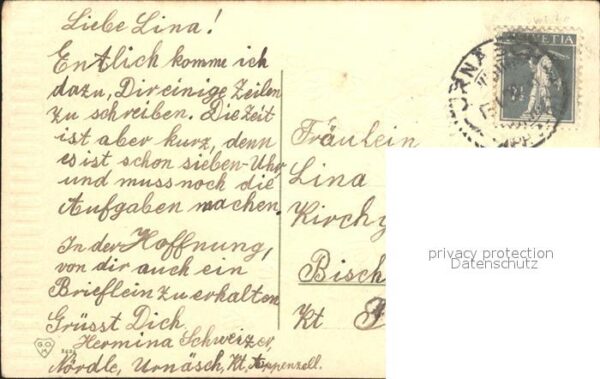 Liebe Lina!
Entlich komme ich
dazu, Dir einige Zeilen
zu schreiben. Die Zeit
ist aber kurz, denn
es ist schon sieben-Uhr,
und muss noch die
Aufgaben machen.
In der Hoffnung,
von dir auch ein
Brieflein zu erhalten
Grüsst Dich
Hermina Schweizer,
Nördle, Urnäsch, Kt, Appenzell.
HELVETIA
Fräulein
Lina
Kirch
Bisch
Kt
privacy protection
Datenschutz